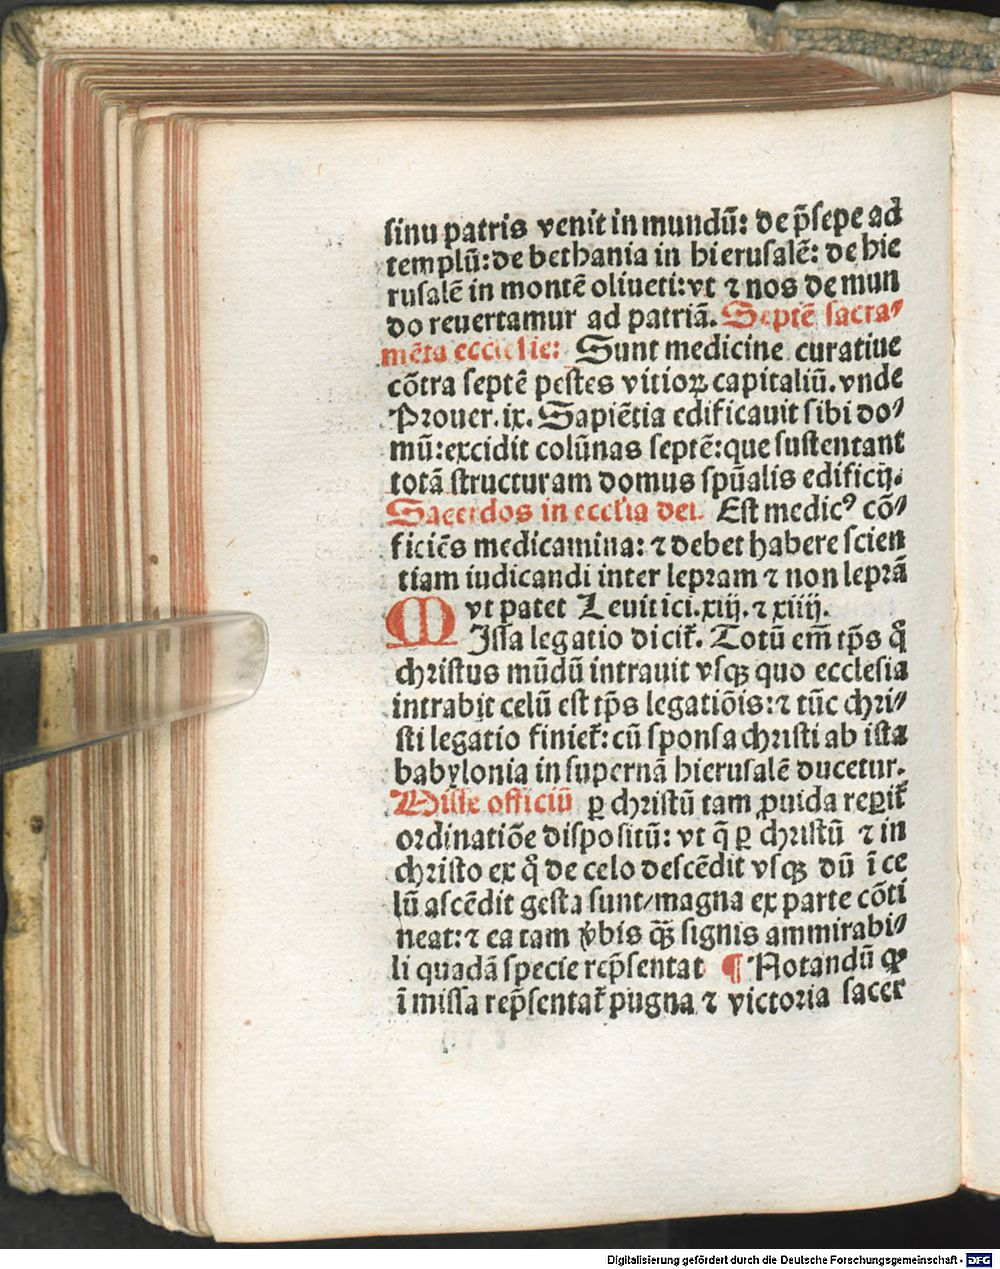 sinu patris venit in mundū: de p̄sepe ad
templū: de bethania in hierusalē: de hie
rusalē in montē oliueti: vt ⁊ nos de mun
do reuertamur ad patriā. Septē sacra⸗
mēta ecclesie: Sunt medicine curatiue
cōtra septē pestes vitioꝝ capitaliū. vnde
Prouer. ix. Sapiētia edificauit sibi do⸗
mū: excidit colūnas septē: que sustentant
totā structuram domus spūalis edificij.
Sacerdos in ecclīa dei. Est medicꝰ cō⸗
ficiēs medicamina: ⁊ debet habere scien
tiam iudicandi inter lepꝛam ⁊ non lepꝛā
vt patet Leuitici. xiij. ⁊ xiiij.
MIssa legatio dicit̄. Totū em̄ tp̄s q̊
chꝛistus mūdū intrauit vsqꝫ quo ecclesia
intrabit celū est tp̄s legatiōis: ⁊ tūc chꝛi⸗
sti legatio finiet̄: cū sponsa chꝛisti ab ista
babylonia in supernā hierusalē ducetur.
Misse officiū ꝑ chꝛistū tam ꝓuida reꝑit̄
oꝛdinatiōe dispositū: vt q̄ ꝑ chꝛistū ⁊ in
chꝛisto ex q̊ de celo descēdit vsqꝫ dū ī ce
lū ascēdit gesta sunt/ magna ex parte cōti
neat: ⁊ ea tam v̄bis qꝫ̄ signis ammirabi⸗
li quadā specie rep̄sentat ¶ Notandū ꝙ
ī missa rep̄sentat̄ pugna ⁊ victoꝛia sacer
Digitalisierung gefördert durch die Deutsche Forschungsgemeinschaft - DFG